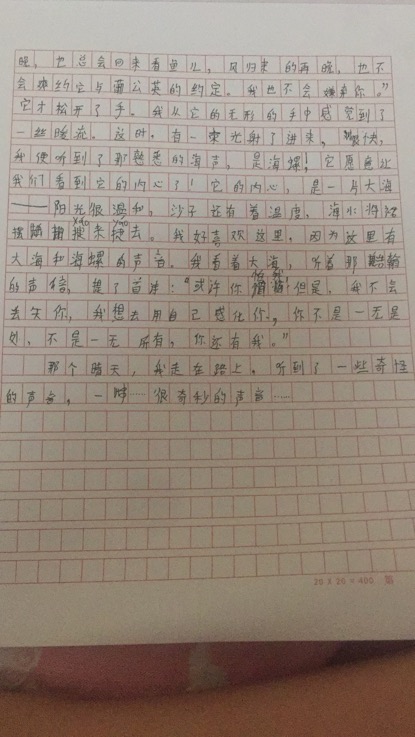 晚，也总会回来看鱼儿，风归来的再晚，也不
会爽约它与蒲公英的约定。我也不会嫌弃你。”
它才松开了手。我从它的无形的手中感觉到了
一丝暖流。这时，有一束光射了进来，很快，
我便听到了那熟悉的海声，是海螺！它愿意让
我们看到它的内心了！它的内心，是一片大海
——阳光很温和，沙子还有着温度，海水将轻
搜来搜去。我好喜欢这里，因为这里有
大海和海螺的声音。我看着大海，听着那
的声音，想了首诗：“或许你 但是，我不会
去灰你，我想去用自己感化你。你不是一无是
处，不是一无所有，你还有我。”
那个晴天，我走在路上，听到了一些奇怪
的声音，一 ……很奇妙的声音……
20×20=400